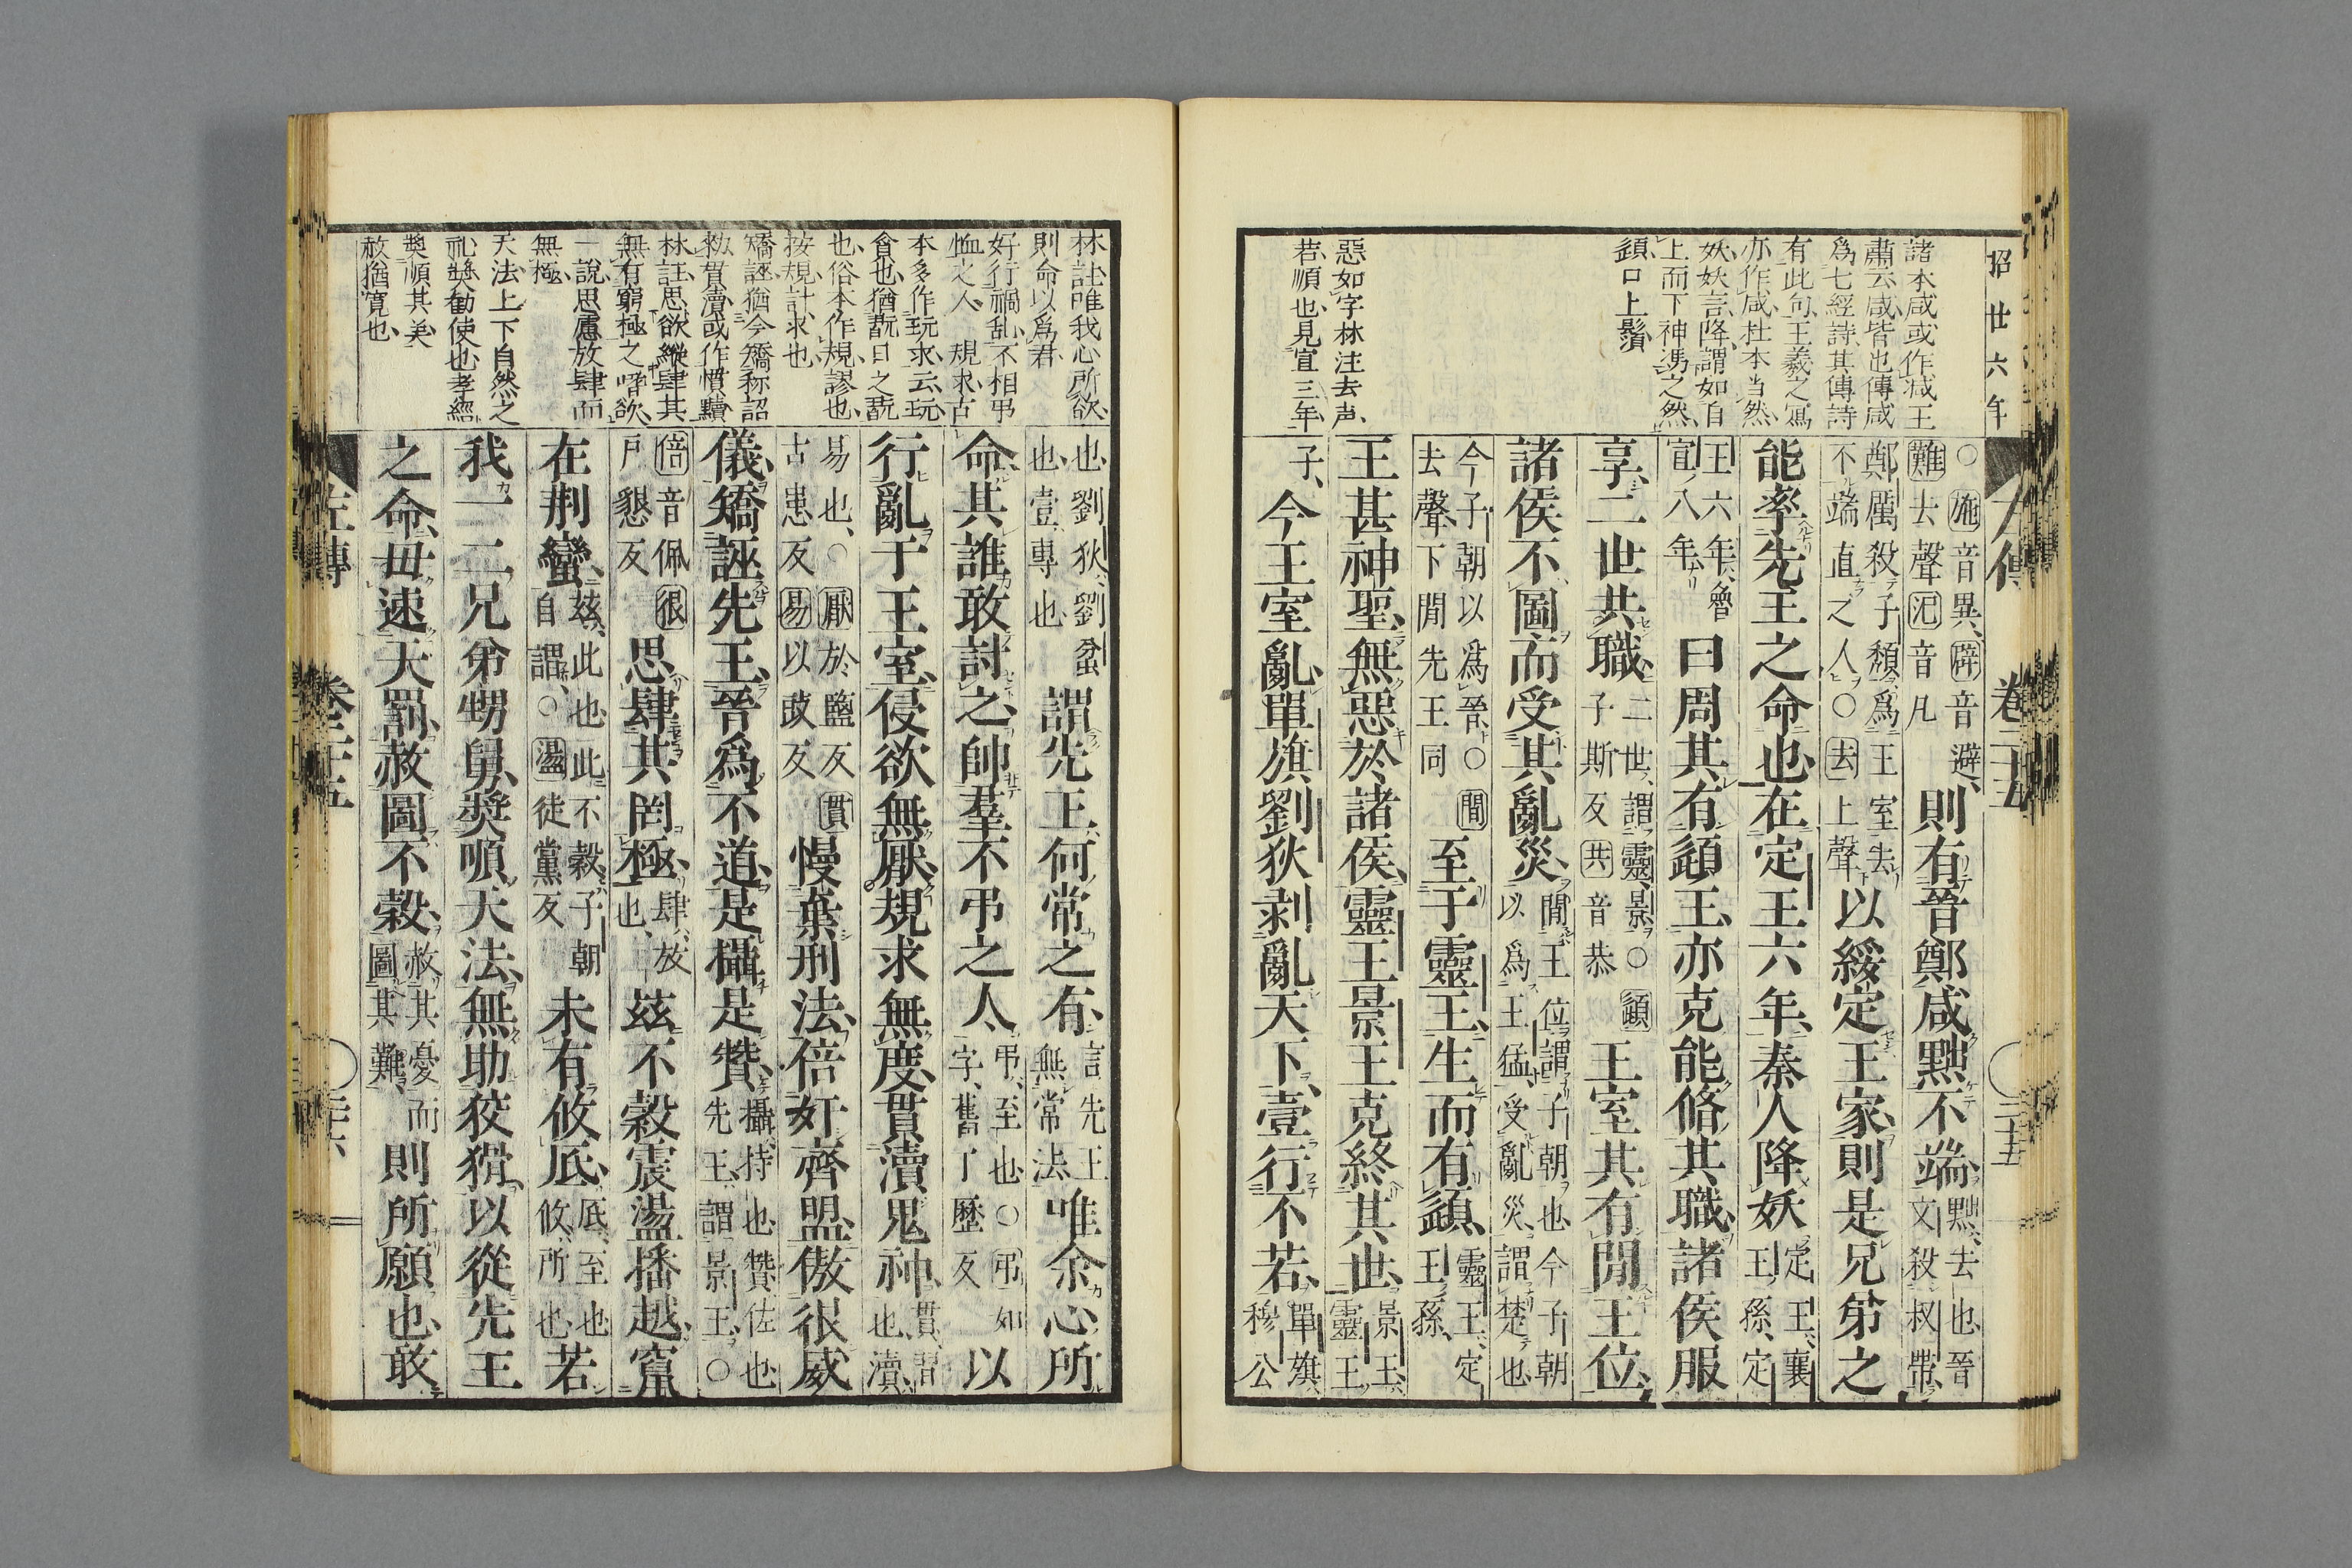 招廿六年
諸本咸或作减王
肅云咸皆也傳咸
爲七經詩其傳詩
有此句王羲之寫
亦作咸杜本当然
妖妖言降謂如自
上而下神馮之然
頿口上鬚
惡如字林注去声
若順也見宣三年
左傳 卷二十五 二十五
○施音異辟音避難去聲氾音凡則有晉鄭咸黜不端黜去也晉文殺叔帶
鄭厲殺子頹爲王室去不端直之人○去上聲以綏定王家則是兄弟之
能率先王之命也在定王六年秦人降妖定王襄王孫定
王六年魯宣八年曰周其有頿王亦克能脩其職諸侯服
享二世共職二世謂靈景○頿子斯反共音恭王室其有閒王位
諸侯不圖而受其亂災閒王位謂子朝也今子朝以爲王猛受亂災謂楚也
今子朝以爲晉○閒去聲下閒先王同至于靈王生而有頿靈王定王孫
王甚神聖無惡於諸侯靈王景王克終其世景王靈王
子今王室亂單旗劉狄剥亂天下壹行不若單旗穆公
林註唯我心所欲
則命以爲君
好行禍乱不相弔
恤之人 規求古
本多作玩求云玩
貪也猶翫日之翫
也俗本作規謬也
按規計求也
矯誣猶今矯称詔
勑貫瀆或作慣黷
林註思欲縱肆其
無有窮極之嗜欲
一説思慮放肆而
無極
天法上下自然之
礼奬勸使也孝經
奬順其美
赦猶寛也
也劉狄劉蚠也壹專也謂先王何常之有言先王無常法唯余心所
命其誰敢討之帥羣不弔之人弔至也○弔如字舊丁歷反以
行亂于王室侵欲無厭規求無度貫瀆鬼神貫習也瀆
易也○厭於鹽反貫古患反易以豉反慢棄刑法倍奸齊盟傲很威
儀矯誣先王晉爲不道是攝是贊攝持也贊佐也先王謂景王○
倍音佩很戶懇反思肆其罔極肆放也兹不穀震盪播越竄
在荆蠻兹此也此不穀子朝自謂○盪徒黨反未有攸底底至也攸所也若
我一二兄弟甥舅奬順天法無助狡猾以從先王
之命毋速天罰赦圖不穀赦其憂而圖其難則所願也敢
左傳 卷二十五 二十六